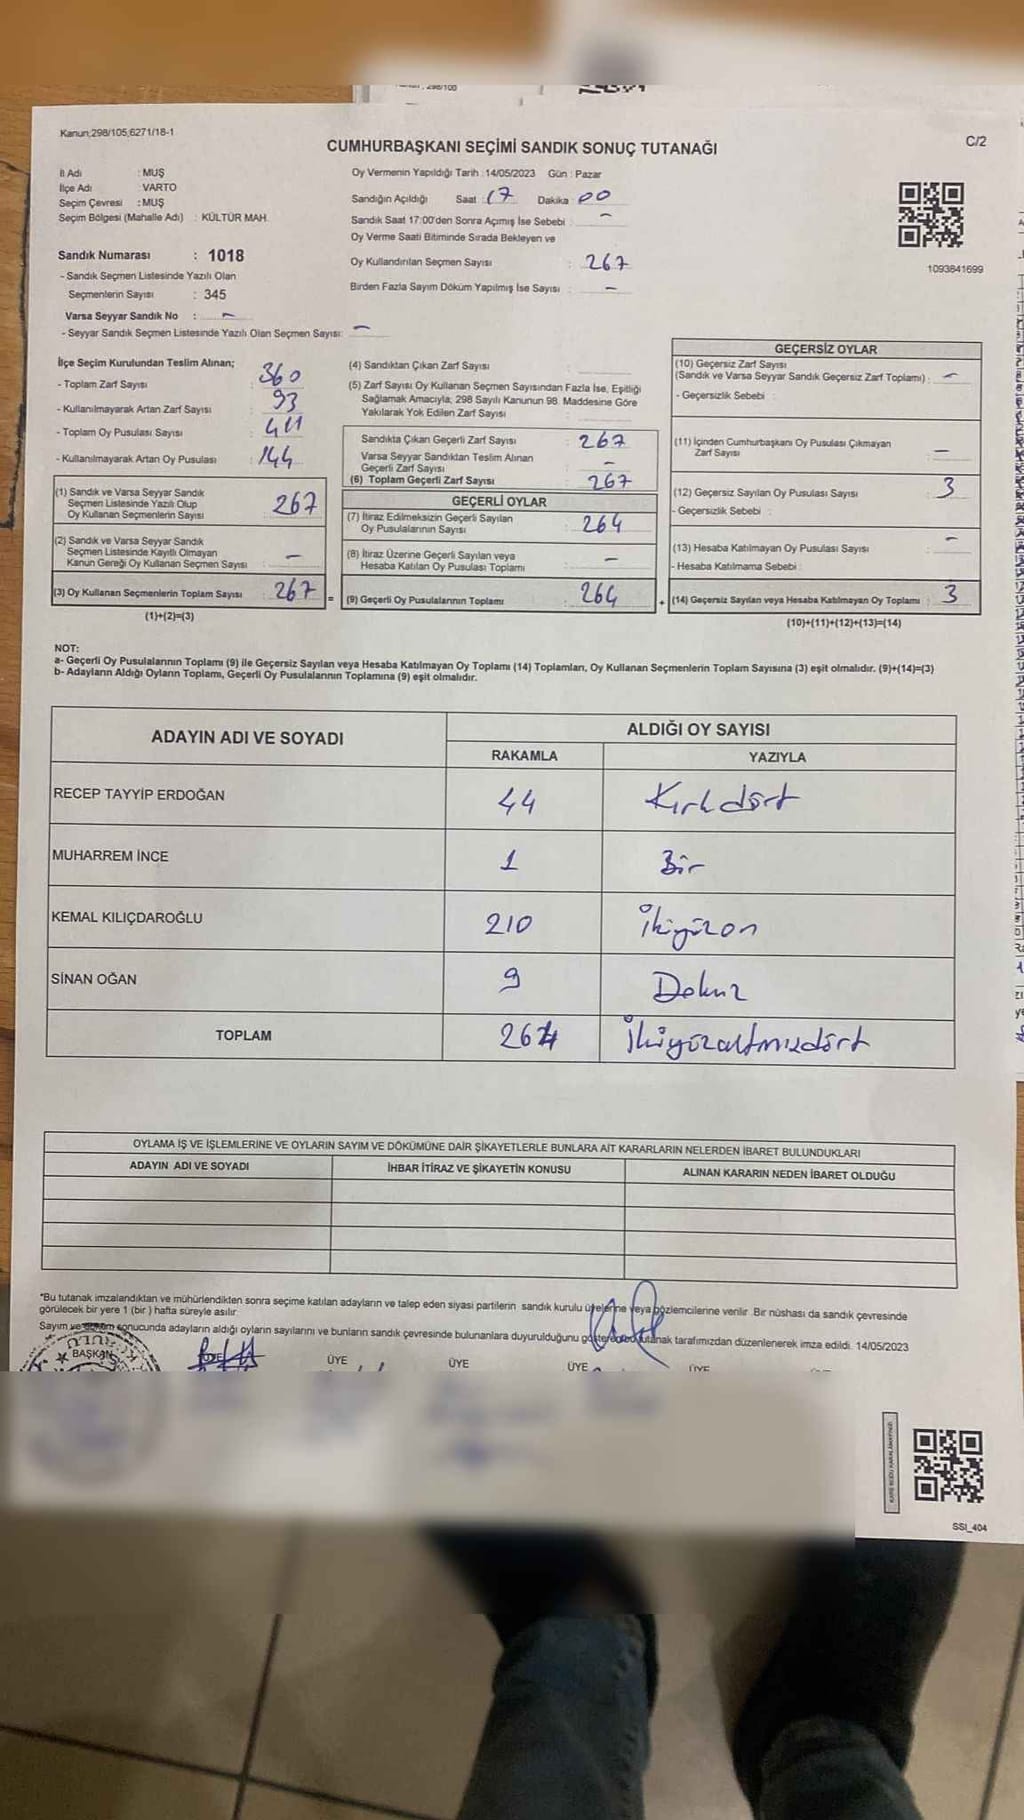 Kanun;298/105,6271/18-1
C/2
CUMHURBAŞKANI SEÇİMİ SANDIK SONUÇ TUTANAĞI
İl Adı : MUŞ
İlçe Adı : VARTO
Seçim Çevresi : MUŞ
Seçim Bölgesi (Mahalle Adı) : KÜLTÜR MAH.
Oy Vermenin Yapıldığı Tarih : 14/05/2023 Gün : Pazar
Sandığın Açıldığı Saat : 17 Dakika : 00
Sandık Saat 17:00'den Sonra Açımış İse Sebebi : -
Oy Verme Saati Bitiminde Sırada Bekleyen ve
Oy Kullandırılan Seçmen Sayısı : 267
Birden Fazla Sayım Döküm Yapılmış İse Sayısı : -
1093841699
Sandık Numarası : 1018
- Sandık Seçmen Listesinde Yazılı Olan
Seçmenlerin Sayısı : 345
Varsa Seyyar Sandık No : -
- Seyyar Sandık Seçmen Listesinde Yazılı Olan Seçmen Sayısı: -
İlçe Seçim Kurulundan Teslim Alınan;
- Toplam Zarf Sayısı : 360
- Kullanılmayarak Artan Zarf Sayısı : 93
- Toplam Oy Pusulası Sayısı : 411
- Kullanılmayarak Artan Oy Pusulası : 144
(1) Sandık ve Varsa Seyyar Sandık
Seçmen Listesinde Yazılı Olup
Oy Kullanan Seçmenlerin Sayısı : 267
(2) Sandık ve Varsa Seyyar Sandık
Seçmen Listesinde Kayıtlı Olmayan
Kanun Gereği Oy Kullanan Seçmen Sayısı : -
(3) Oy Kullanan Seçmenlerin Toplam Sayısı : 267 =
(1)+(2)=(3)
(4) Sandıktan Çıkan Zarf Sayısı :
(5) Zarf Sayısı Oy Kullanan Seçmen Sayısından Fazla İse, Eşitliği
Sağlamak Amacıyla; 298 Sayılı Kanunun 98. Maddesine Göre
Yakılarak Yok Edilen Zarf Sayısı :
Sandıkta Çıkan Geçerli Zarf Sayısı : 267
Varsa Seyyar Sandıktan Teslim Alınan
Geçerli Zarf Sayısı : -
(6) Toplam Geçerli Zarf Sayısı : 267
GEÇERLİ OYLAR
(7) İtiraz Edilmeksizin Geçerli Sayılan
Oy Pusulalarının Sayısı : 264
(8) İtiraz Üzerine Geçerli Sayılan veya
Hesaba Katılan Oy Pusulası Toplamı : -
(9) Geçerli Oy Pusulalarının Toplamı : 264 +
GEÇERSİZ OYLAR
(10) Geçersiz Zarf Sayısı
(Sandık ve Varsa Seyyar Sandık Geçersiz Zarf Toplamı) : -
- Geçersizlik Sebebi :
(11) İçinden Cumhurbaşkanı Oy Pusulası Çıkmayan
Zarf Sayısı : -
(12) Geçersiz Sayılan Oy Pusulası Sayısı : 3
- Geçersizlik Sebebi :
(13) Hesaba Katılmayan Oy Pusulası Sayısı : -
- Hesaba Katılmama Sebebi :
(14) Geçersiz Sayılan veya Hesaba Katılmayan Oy Toplamı : 3
(10)+(11)+(12)+(13)=(14)
NOT:
a- Geçerli Oy Pusulalarının Toplamı (9) ile Geçersiz Sayılan veya Hesaba Katılmayan Oy Toplamı (14) Toplamları, Oy Kullanan Seçmenlerin Toplam Sayısına (3) eşit olmalıdır. (9)+(14)=(3)
b- Adayların Aldığı Oyların Toplamı, Geçerli Oy Pusulalarının Toplamına (9) eşit olmalıdır.
ADAYIN ADI VE SOYADI
ALDIĞI OY SAYISI
RAKAMLA YAZIYLA
RECEP TAYYİP ERDOĞAN 44 Kırkdört
MUHARREM İNCE 1 Bir
KEMAL KILIÇDAROĞLU 210 İkiyüzon
SİNAN OĞAN 9 Dokuz
TOPLAM 264 İkiyüzaltmışdört
OYLAMA İŞ VE İŞLEMLERİNE VE OYLARIN SAYIM VE DÖKÜMÜNE DAİR ŞİKAYETLERLE BUNLARA AİT KARARLARIN NELERDEN İBARET BULUNDUKLARI
ADAYIN ADI VE SOYADI İHBAR İTİRAZ VE ŞİKAYETİN KONUSU ALINAN KARARIN NEDEN İBARET OLDUĞU
*Bu tutanak imzalandıktan ve mühürlendikten sonra seçime katılan adayların ve talep eden siyasi partilerin sandık kurulu üyelerine veya gözlemcilerine verilir. Bir nüshası da sandık çevresinde
görülecek bir yere 1 (bir) hafta süreyle asılır.
Sayım ve döküm sonucunda adayların aldığı oyların sayılarını ve bunların sandık çevresinde bulunanlara duyurulduğunu gösteren bu tutanak tarafımızdan düzenlenerek imza edildi. 14/05/2023
BAŞKAN ÜYE ÜYE ÜYE ÜYE ÜYE
SSI_404